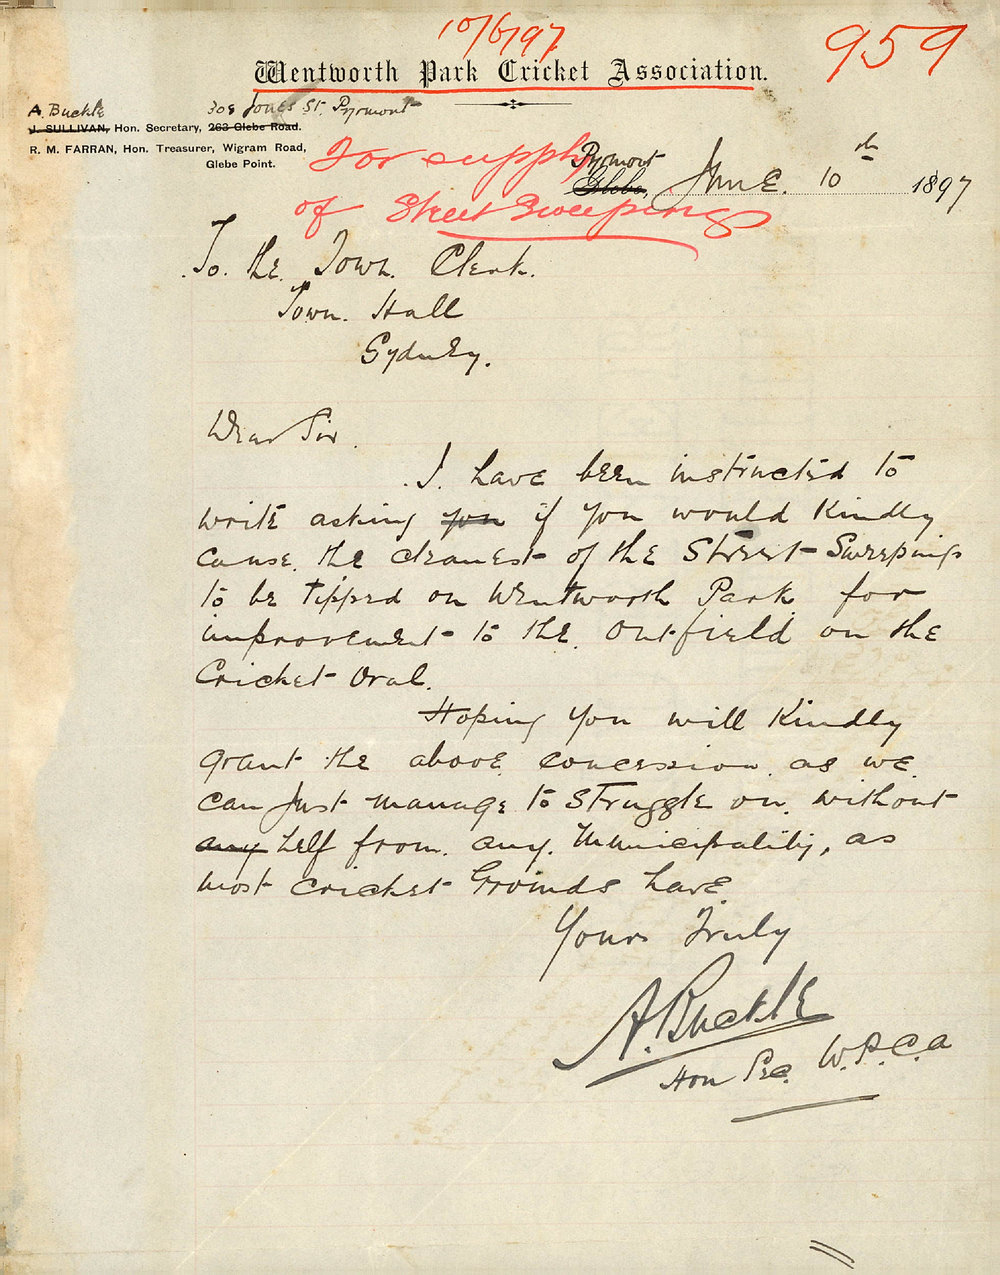 10/6/97.
959
Wentworth Park Cricket Association.
A. Buckle 308 Jones St. Pyrmont
J. SULLIVAN, Hon. Secretary, 263 Glebe Road.
R. M. FARRAN, Hon. Treasurer, Wigram Road,
Glebe Point.
For supply
of Street Sweepings
Pyrmont
Glebe, June. 10th 1897
To. the. Town. Clerk.
Town. Hall
Sydney.
Dear Sir.
I have been instructed to
write asking you if you would Kindly
cause. the cleanest of the Street Sweepings
to be tipped on Wentworth Park for
improvement to the. Outfield on the
Cricket Oval.
Hoping you will Kindly
grant the above concession. as we
can just manage to struggle on. without
any help from. any. Municipality, as
most cricket Grounds have.
Yours Truly
A. Buckle
Hon Sec. W.P.C.A